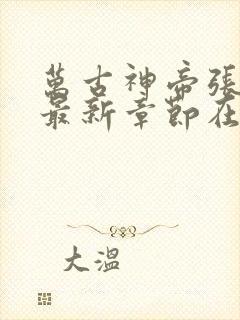 萬古神帝張
最新章節在
大溫